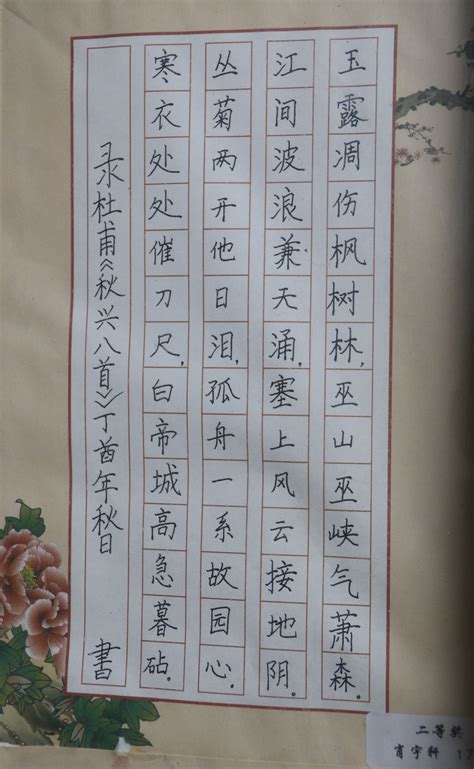 玉露凋伤枫树林，巫山巫峡气萧森。
江间波浪兼天涌，塞上风云接地阴。
丛菊两开他日泪，孤舟一系故园心。
寒衣处处催刀尺，白帝城高急暮砧。
录杜甫《秋兴八首》丁酉年秋日 書
二等奖
肖宇轩